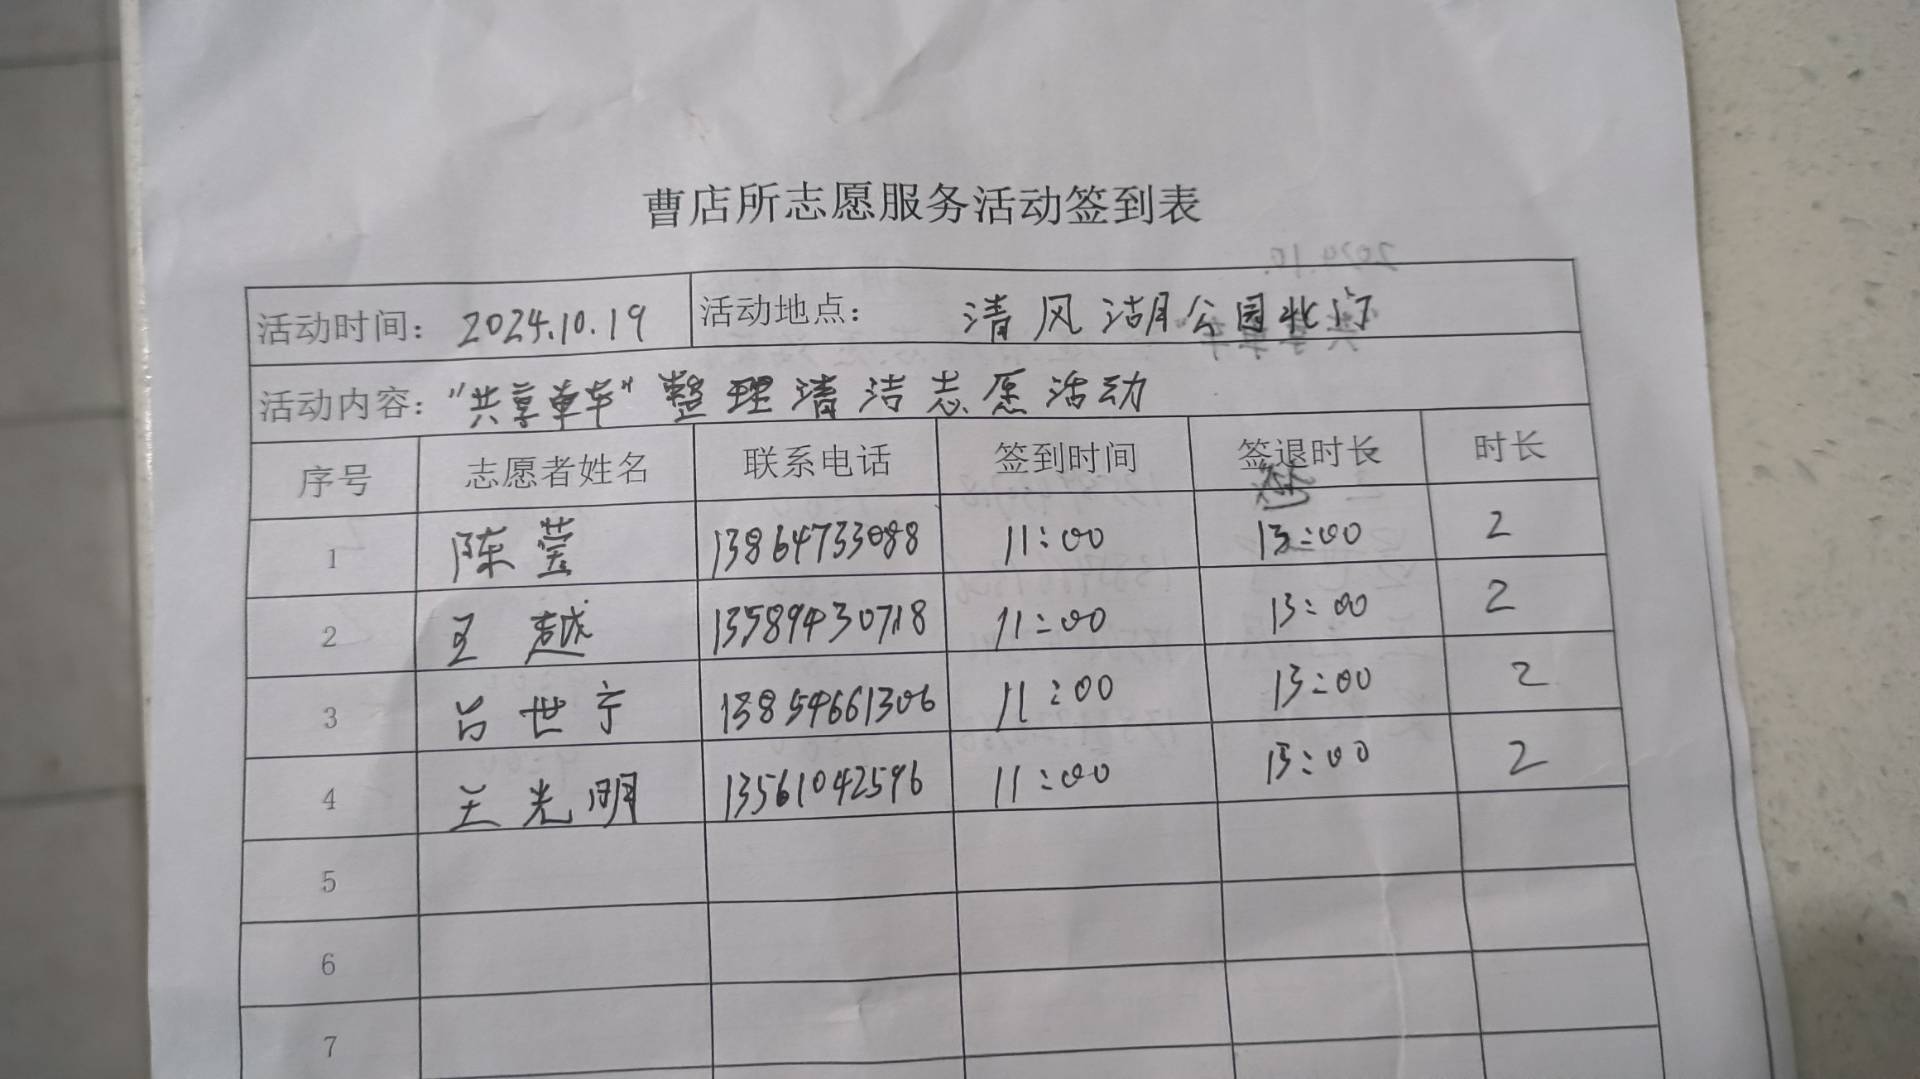 曹店所志愿服务活动签到表
活动时间： 2024.10.19 活动地点： 清风湖公园北门
活动内容： "共享单车"整理清洁志愿活动
序号 志愿者姓名 联系电话 签到时间 签退时长 时长
1 陈莹 13864733088 11:00 13:00 2
2 王越 13589430718 11:00 13:00 2
3 吕世宁 13854661306 11:00 13:00 2
4 王光明 13561042596 11:00 13:00 2
5
6
7